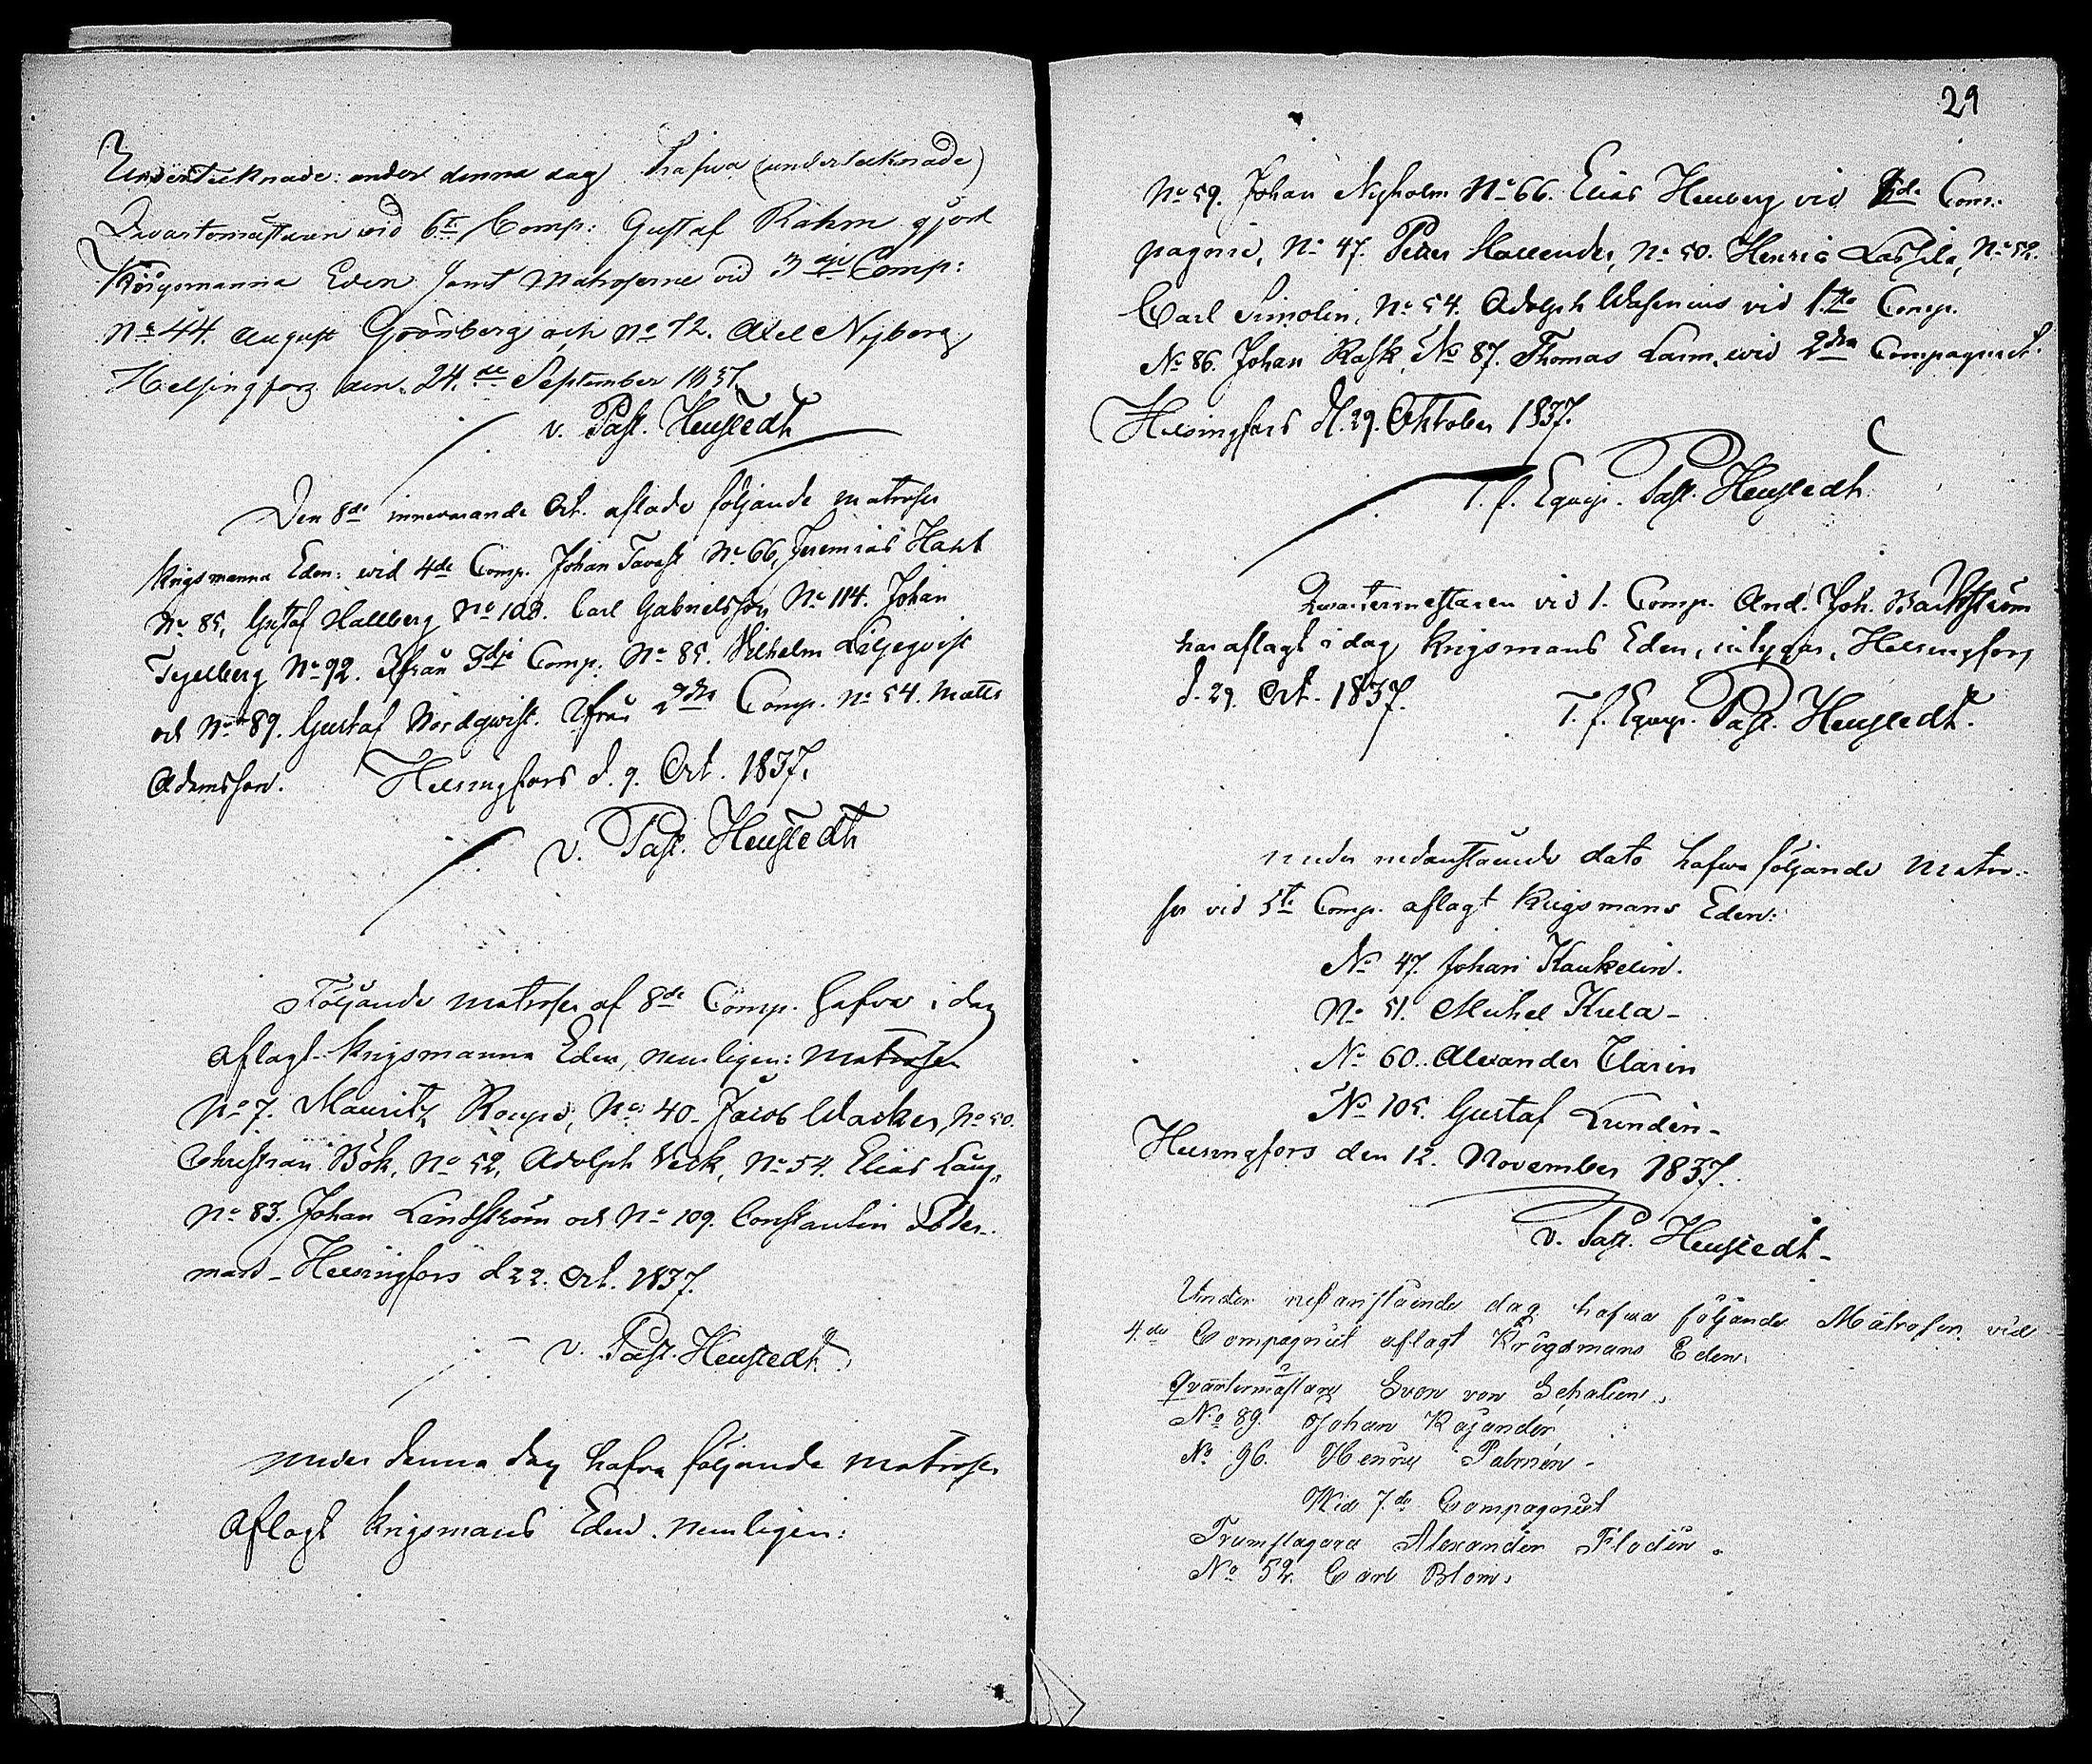 Undertecknade: under denna dag hafwa (undertecknade)
Qvartermästaren vid 6te Comp: Gustaf Rahm gjort
Krigsmanna Eden samt Matroserne vid 3dje Comp:
No 44. August Grönberg och No 72. Axel Nyberg
Helsingfors den 24.de September 1837.
v. Past. Heustedt
Den 8de innevarande Oct. aflade följande matroser
Krigsmanna Eden: vid 4de Comp. Johan Tavast No 66, Jeremias Hahl
No 85, Gustaf Hallberg No 108. Carl Gabrielsson No 114. Johan
Tegelberg No 92. Ifrån 3dje Comp. No 85. Vilhelm Liljeqvist
och No 89. Gustaf Nordqvist. Ifrån 2dra Comp. No 54. Matts
Adamsson. Helsingfors d. 9. Oct. 1837.
v. Past. Heustedt
Följande matroser af 8de Comp. hafva i dag
aflagt Krigsmanna Eden, nemligen: Matrosen
No 7. Mauritz No 40. Jacob Wacker, No 50.
Christian Bök, No 52, Adolph Veck, No 54. Elias Lang,
No 83. Johan Lindström och No 109. Constantin Söder-
man - Helsingfors d 22. Oct. 1837.
v. Past. Heustedt.
Under denna dag hafva följande matroser
aflagt Krigsmans Eden nemligen:
29
No 59. Johan Nyholm No 66. Elias Henberg vid Com-
pagnie, No 47. Petter Hallender, No 50. Henric No 52.
Carl Simolin, No 54. Adolph Wasenius vid 1sta Comp.
No 86. Johan Rask, No 87. Thomas Larm, vid 2dra Compagniet.
Helsingfors d. 29. Oktober 1837.
T. f. Equip. Past. Heustedt
Qvartermestaren vid 1. Comp. And. Joh. Backström
har aflagt i dag Krigsmans Eden, intygar, Helsingfors
d. 29. Oct. 1837. T. f. Equip. Past. Heustedt.
Under nedanstående dato hafva följande Matro-
ser vid 5te Comp. aflagt Krigsmans Eden:
No 47. Johan Kaukelin.
No 51. Michel Kula -
No 60. Alexander Clarin
No 105. Gustaf Lundén -
Helsingfors den 12. November 1837.
v. Past. Heustedt -
Under nedanstående dag hafwa följande Matroser vid
4.de Compagniet aflagt Krigsmans Eden.
Qvartermästare Sven von
No 89. Johan Kajander
No 96. Henric Palmén -
Wid 7.de Compagniet
Trumslagare Alexander Flodin.
No 52. Carl Blom.